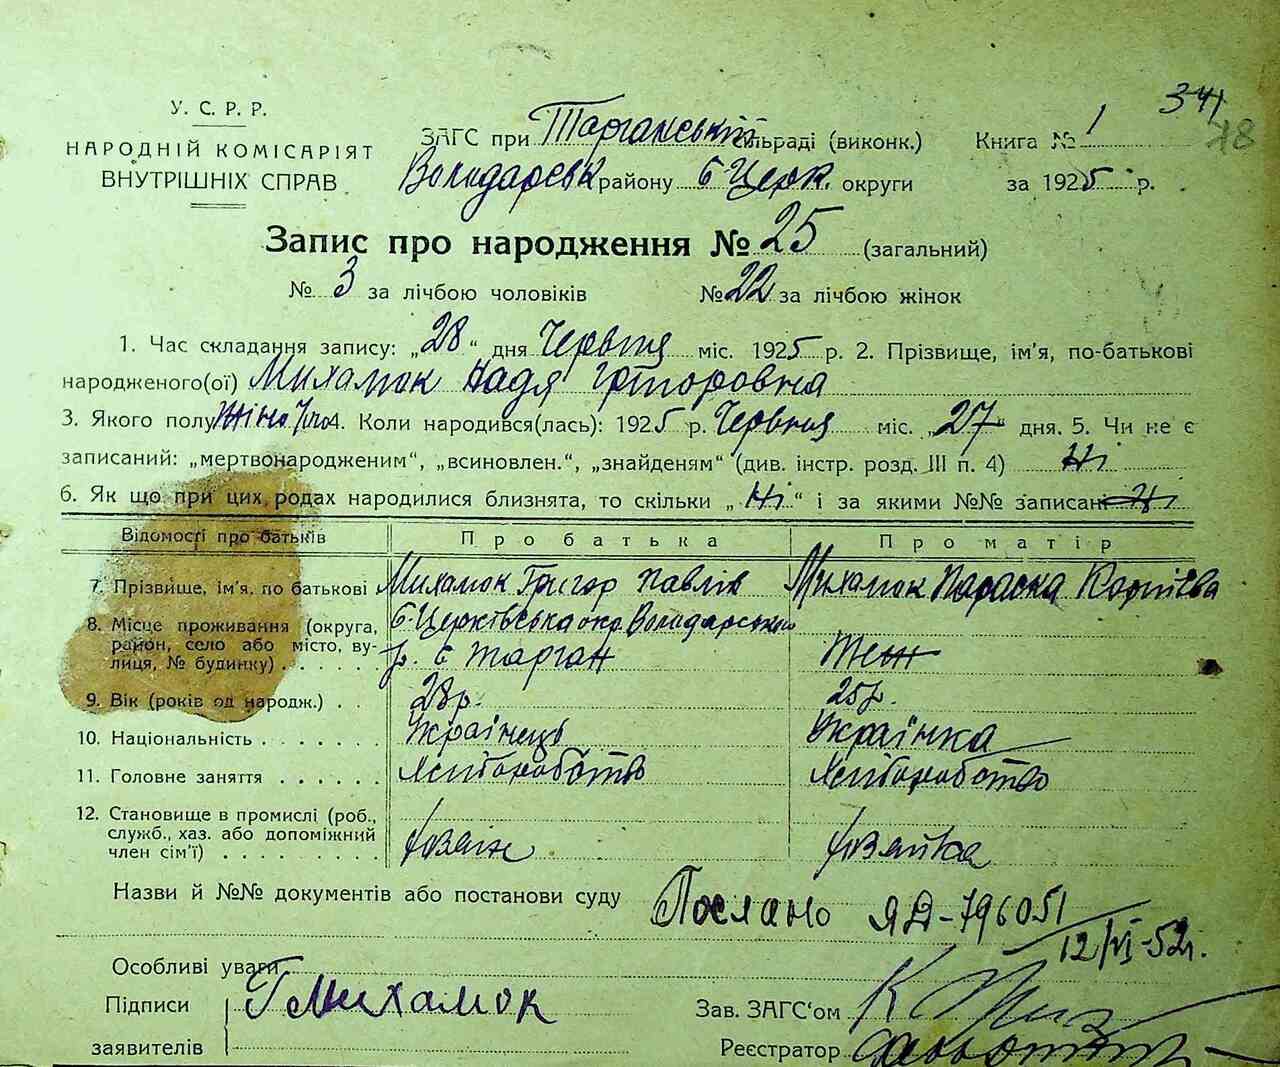 У. С. Р. Р.
НАРОДНІЙ КОМІСАРІЯТ
ВНУТРІШНІХ СПРАВ
ЗАГС при Тарганський сільраді (виконк.)
Володарськ району Б Церк. округи
Книга № 1
341
78
за 1925 р.
Запис про народження № 25 (загальний)
№ 3 за лічбою чоловіків № 22 за лічбою жінок
1. Час складання запису: „28“ дня Червня міс. 1925 р. 2. Прізвище, ім'я, по-батькові
народженого(ої) Михамок Надя Григоровна
3. Якого полу Жіночог 4. Коли народився(лась): 1925 р. Червня міс. „27“ дня. 5. Чи не є
записаний: „мертвонародженим“, „всиновлен.“, „знайденям“ (див. інстр. розд. III п. 4) Ні
6. Як що при цих родах народилися близнята, то скільки „Ні“ і за якими №№ записані Ні
Відомості про батьків Про батька Про матір
7. Прізвище, ім'я, по батькові Михамок Григор Павлів Михамок Параска Корніева
8. Місце проживання (округа, район, село або місто, вулиця, № будинку) Б. Церківська окр. Володарський
р. с Тарган Теж
9. Вік (років од народж.) 28р. 25р.
10. Національність Українець Українка
11. Головне заняття Хліборобство Хліборобство
12. Становище в промислі (роб.,
служб., хаз. або допоміжний
член сім'ї) Хозяїн Хозяйка
Назви й №№ документів або постанови суду Послано ЯД-796051
12/VI-52г.
Особливі уваги
Підписи Г Михамок Зав. ЗАГС'ом
заявителів Реєстратор